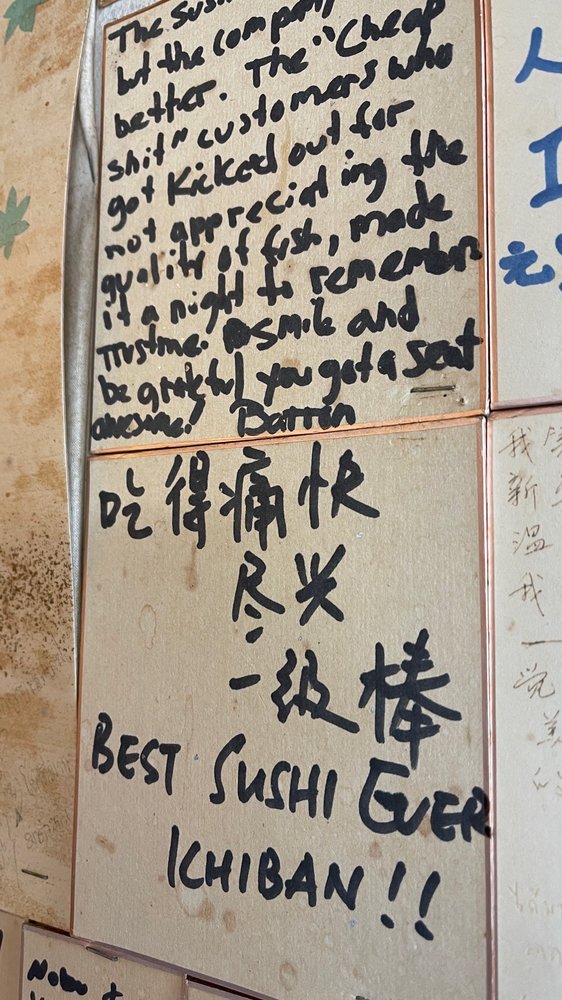 The Sushi
but the company
better. The "Cheap
shit" customers who
got kicked out for
not appreciating the
quality of fish, made
it a night to remember
Trust me. smile and
be grateful you got a seat
awesome! Darren
吃得痛快
尽兴
一级棒
BEST SUSHI EVER
ICHIBAN!!
人
I
元
我
新
温
我
一
觉
美
的